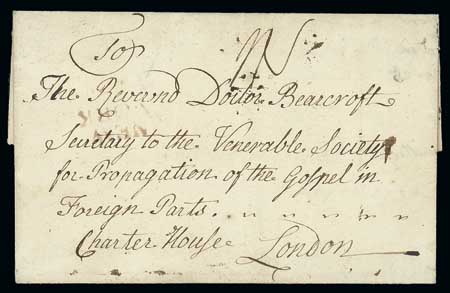 To
The Reverend Doctor Bearcroft
Secretary to the Venerable Society
for Propagation of the Gospel in
Foreign Parts.
Charter House London